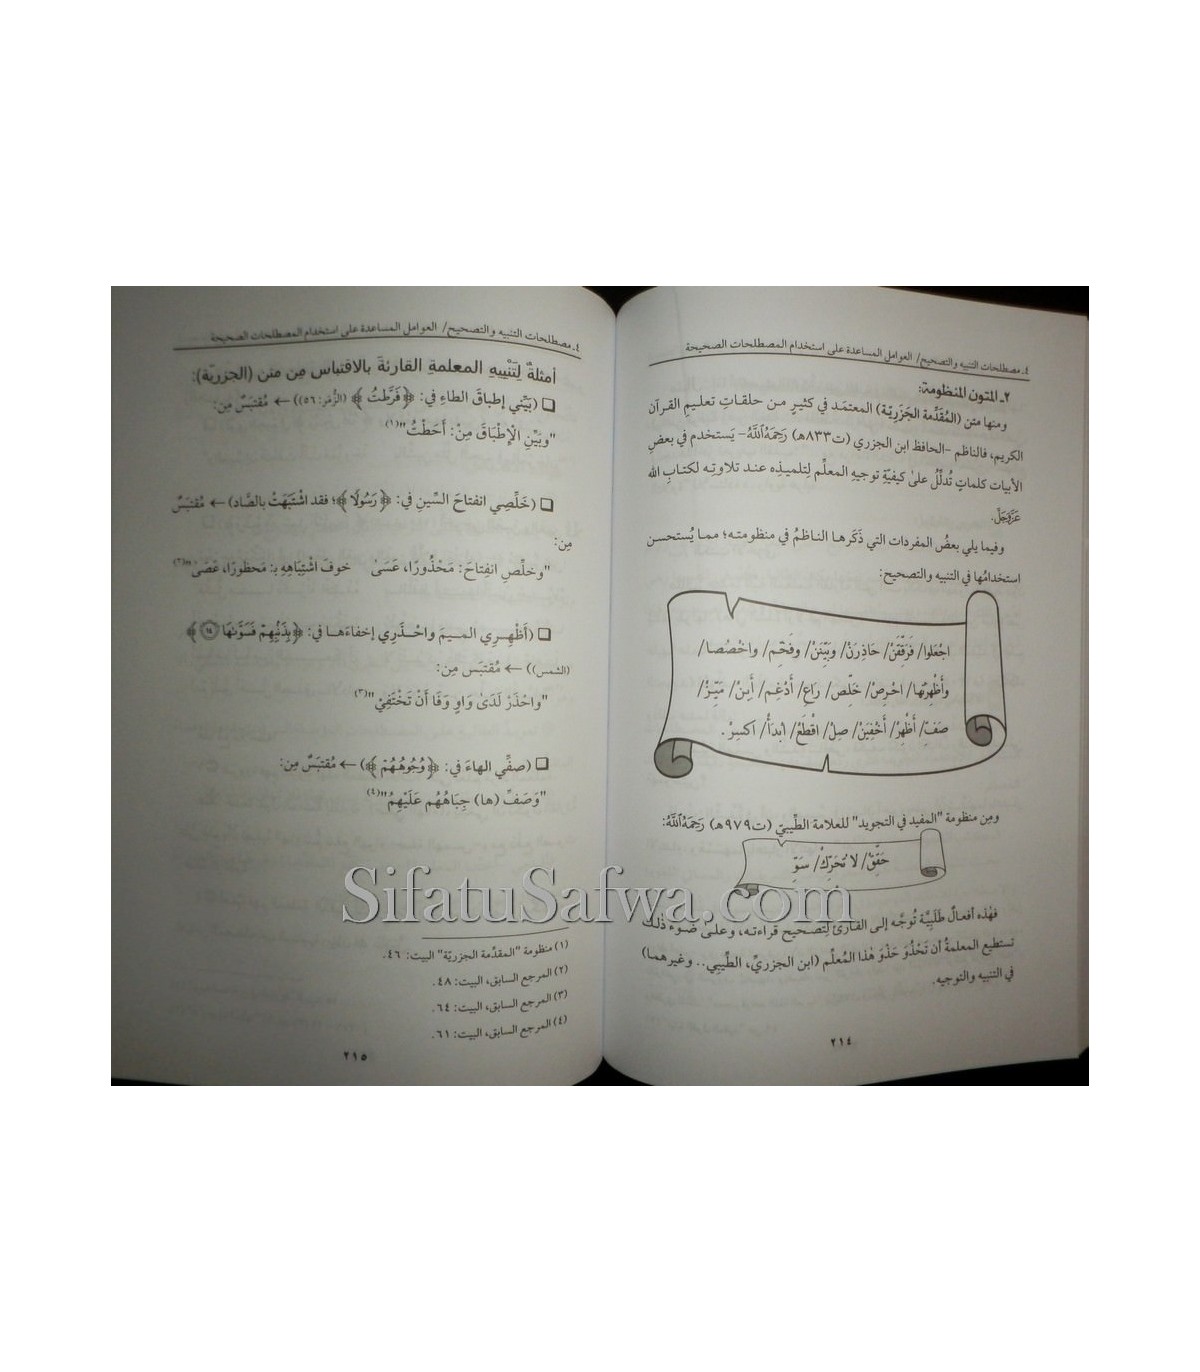 ٤ـ مصطلحات التنبيه والتصحيح/ العوامل المساعدة على استخدام المصطلحات الصحيحة
٢ـ المتون المنظومة:
ومنها متن (المُقَدِّمة الجَزَرِيّة) المعتمَد في كثيرٍ من حلقاتِ تعليمِ القرآن
الكريم، فالناظم -الحافظ ابن الجزري (ت٨٣٣ﻫ) رَحِمَهُ ٱللَّهُ- يَستخدم في بعضِ
الأبيات كلماتٍ تُدلِّلُ علىٰ كيفيّةِ توجيهِ المعلِّم لِتلميذِه عند تلاوتِه لكتابِ الله
عَزَّوَجَلَّ.
وفيما يلي بعضُ المفردات التي ذَكَرها الناظمُ في منظومتـه؛ مما يُستحسن
استخدامُها في التنبيه والتصحيح:
اجْعَلوا/ فَرَقِّقَنْ/ حَاذِرَنْ/ وَبَيِّنَنْ/ وفَخِّم/ واخْصُصا/
وأَظْهِرَنْها/ احْرِصْ/ خَلِّص/ رَاعِ/ أَدْغِم/ أَبِنْ/ مَيِّزْ/
صَفِّ/ أَظْهِرْ/ أَخْفِيَنْ/ صِلْ/ اقْطَعْ/ ابْدَأْ/ اكسِرْ .
ومِن منظومة "المفيد في التجويد" للعلامة الطِّيبيّ (ت٩٧٩ﻫ) رَحِمَهُ ٱللَّهُ:
حَقِّقْ/ لا تُحَرِّكْ/ سَوِّ
فهٰذه أفعالٌ طَلَبِيَّة تُوجَّه إلى القارئ لِتصحيح قراءته، وعلىٰ ضَوء ذٰلك
تستطيع المعلمةُ أن تَحْذُوَ حَذْوَ هٰذا المُعلِّم (ابن الجزريّ، الطِّيبِي.. وغيرهما)
في التنبيه والتوجيه.
٢١٤
٤ـ مصطلحات التنبيه والتصحيح/ العوامل المساعدة على استخدام المصطلحات الصحيحة
أمثلةٌ لِتَنْبِيهِ المعلمةِ القارئةَ بالاقتباس مِن متن (الجزريّة):
❑ (بَيِّني إطباقَ الطاءِ في: ﴿فَرَّطتُ﴾ (الزُّمَر: ٥٦)) ← مُقتبَسٌ مِن:
"وبَيِّنِ الْإِطْبَاقَ مِنْ: أَحَطْتُ"(١)
❑ (خَلِّصِي انفتاحَ السِّينِ في: ﴿رَسُولًا﴾؛ فقد اشْتَبَهَتْ بالصَّاد) ← مُقتبَسٌ
مِن:
"وخلِّصِ انفِتاحَ: مَحْذُورًا، عَسَىٰ خوفَ اشْتِبَاهِهِ بـ: مَحظورًا، عَصَىٰ"(٢)
❑ (أَظْهِـرِي المـيمَ واحْـذَرِي إخفاءَهـا في: ﴿بِذَنۢبِهِمۡ فَسَوَّىٰهَا ١٤﴾
(الشمس)) ← مُقتبَس مِن:
"واحْذَرْ لَدَىٰ وَاوٍ وَفَا أَنْ تَخْتَفِيْ"(٣)
❑ (صفِّي الهاءَ في: ﴿وُجُوهُهُمۡ﴾) ← مُقتبَسٌ مِن:
"وَصَفِّ (ها) جِبَاهُهُم عَلَيْهِمُ"(٤)
(١) منظومة "المقدِّمة الجزريّة" البيت: ٤٦.
(٢) المرجع السابق، البيت: ٤٨.
(٣) المرجع السابق، البيت: ٦٤.
(٤) المرجع السابق، البيت: ٦١.
٢١٥
SifatuSafwa.com